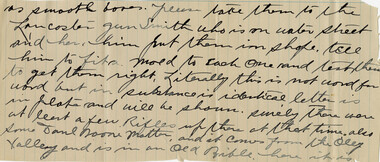 as smooth bores. take them to the
Lancaster gun Smith who is on water street
and her him put them in shape. tell
him to fit a mold to Each One and test them
to get them right. Literally this is not word for
word but in substance is identical letter is
in plate and will be shown. surely there were
at least a few Rifles up there at that time. also
some Danl Boone Matter and it comes from the Oley
Valley and is in an Old Bible